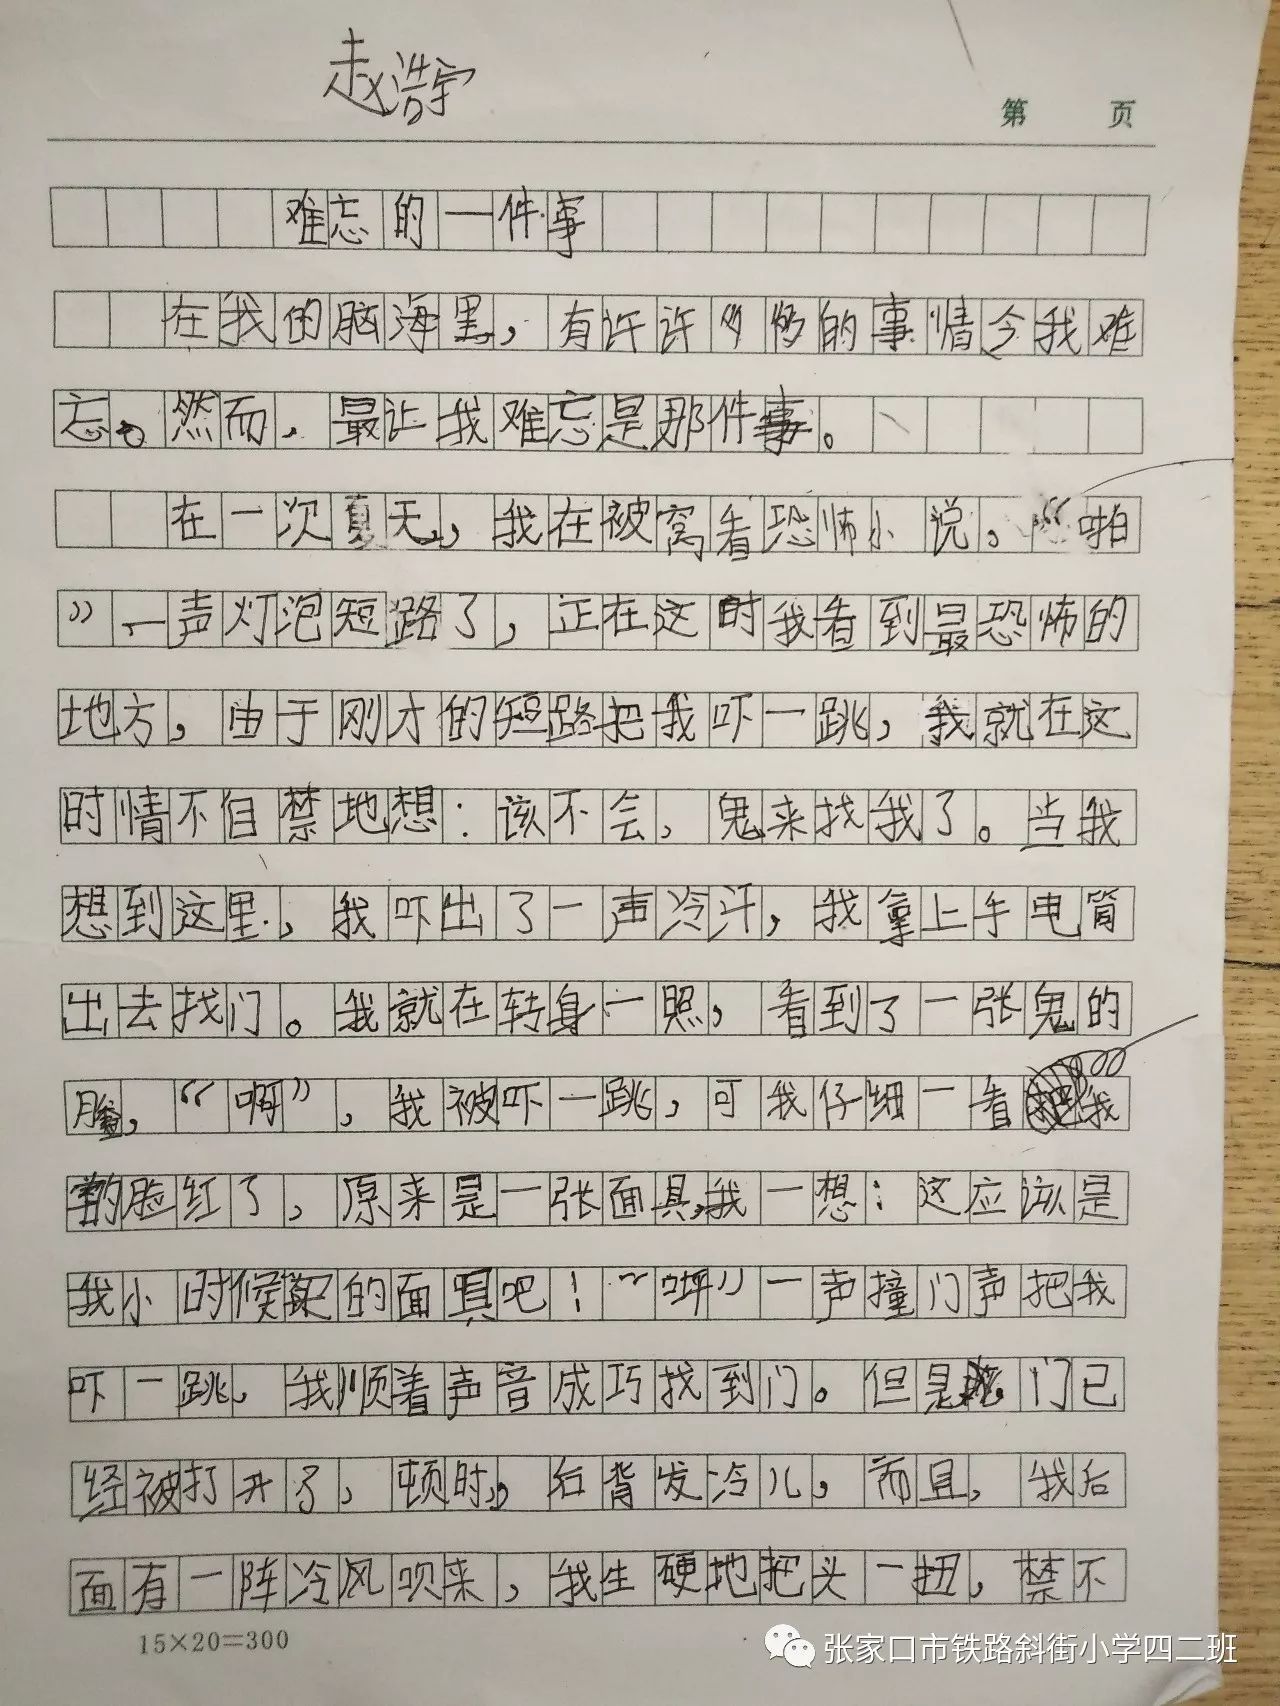 赵浩宇
第 页
难忘的一件事
在我的脑海里，有许许多多的事情令我难
忘。然而，最让我难忘是那件事。
在一次夏天，我在被窝看恐怖小说，“啪
”一声灯泡短路了，正在这时我看到最恐怖的
地方，由于刚才的短路把我吓一跳，我就在这
时情不自禁地想：该不会，鬼来找我了。当我
想到这里，我吓出了一声冷汗，我拿上手电筒
出去找门。我就在转身一照，看到了一张鬼的
脸，“啊”，我被吓一跳，可我仔细一看我
的脸红了，原来是一张面具，我一想：这应该是
我小时候买的面具吧！“咩”一声撞门声把我
吓一跳，我顺着声音成巧找到门。但是门已
经被打开了，顿时，后背发冷儿，而且，我后
面有一阵冷风吹来，我生硬地把头一扭，禁不
15×20=300
张家口市铁路斜街小学四二班